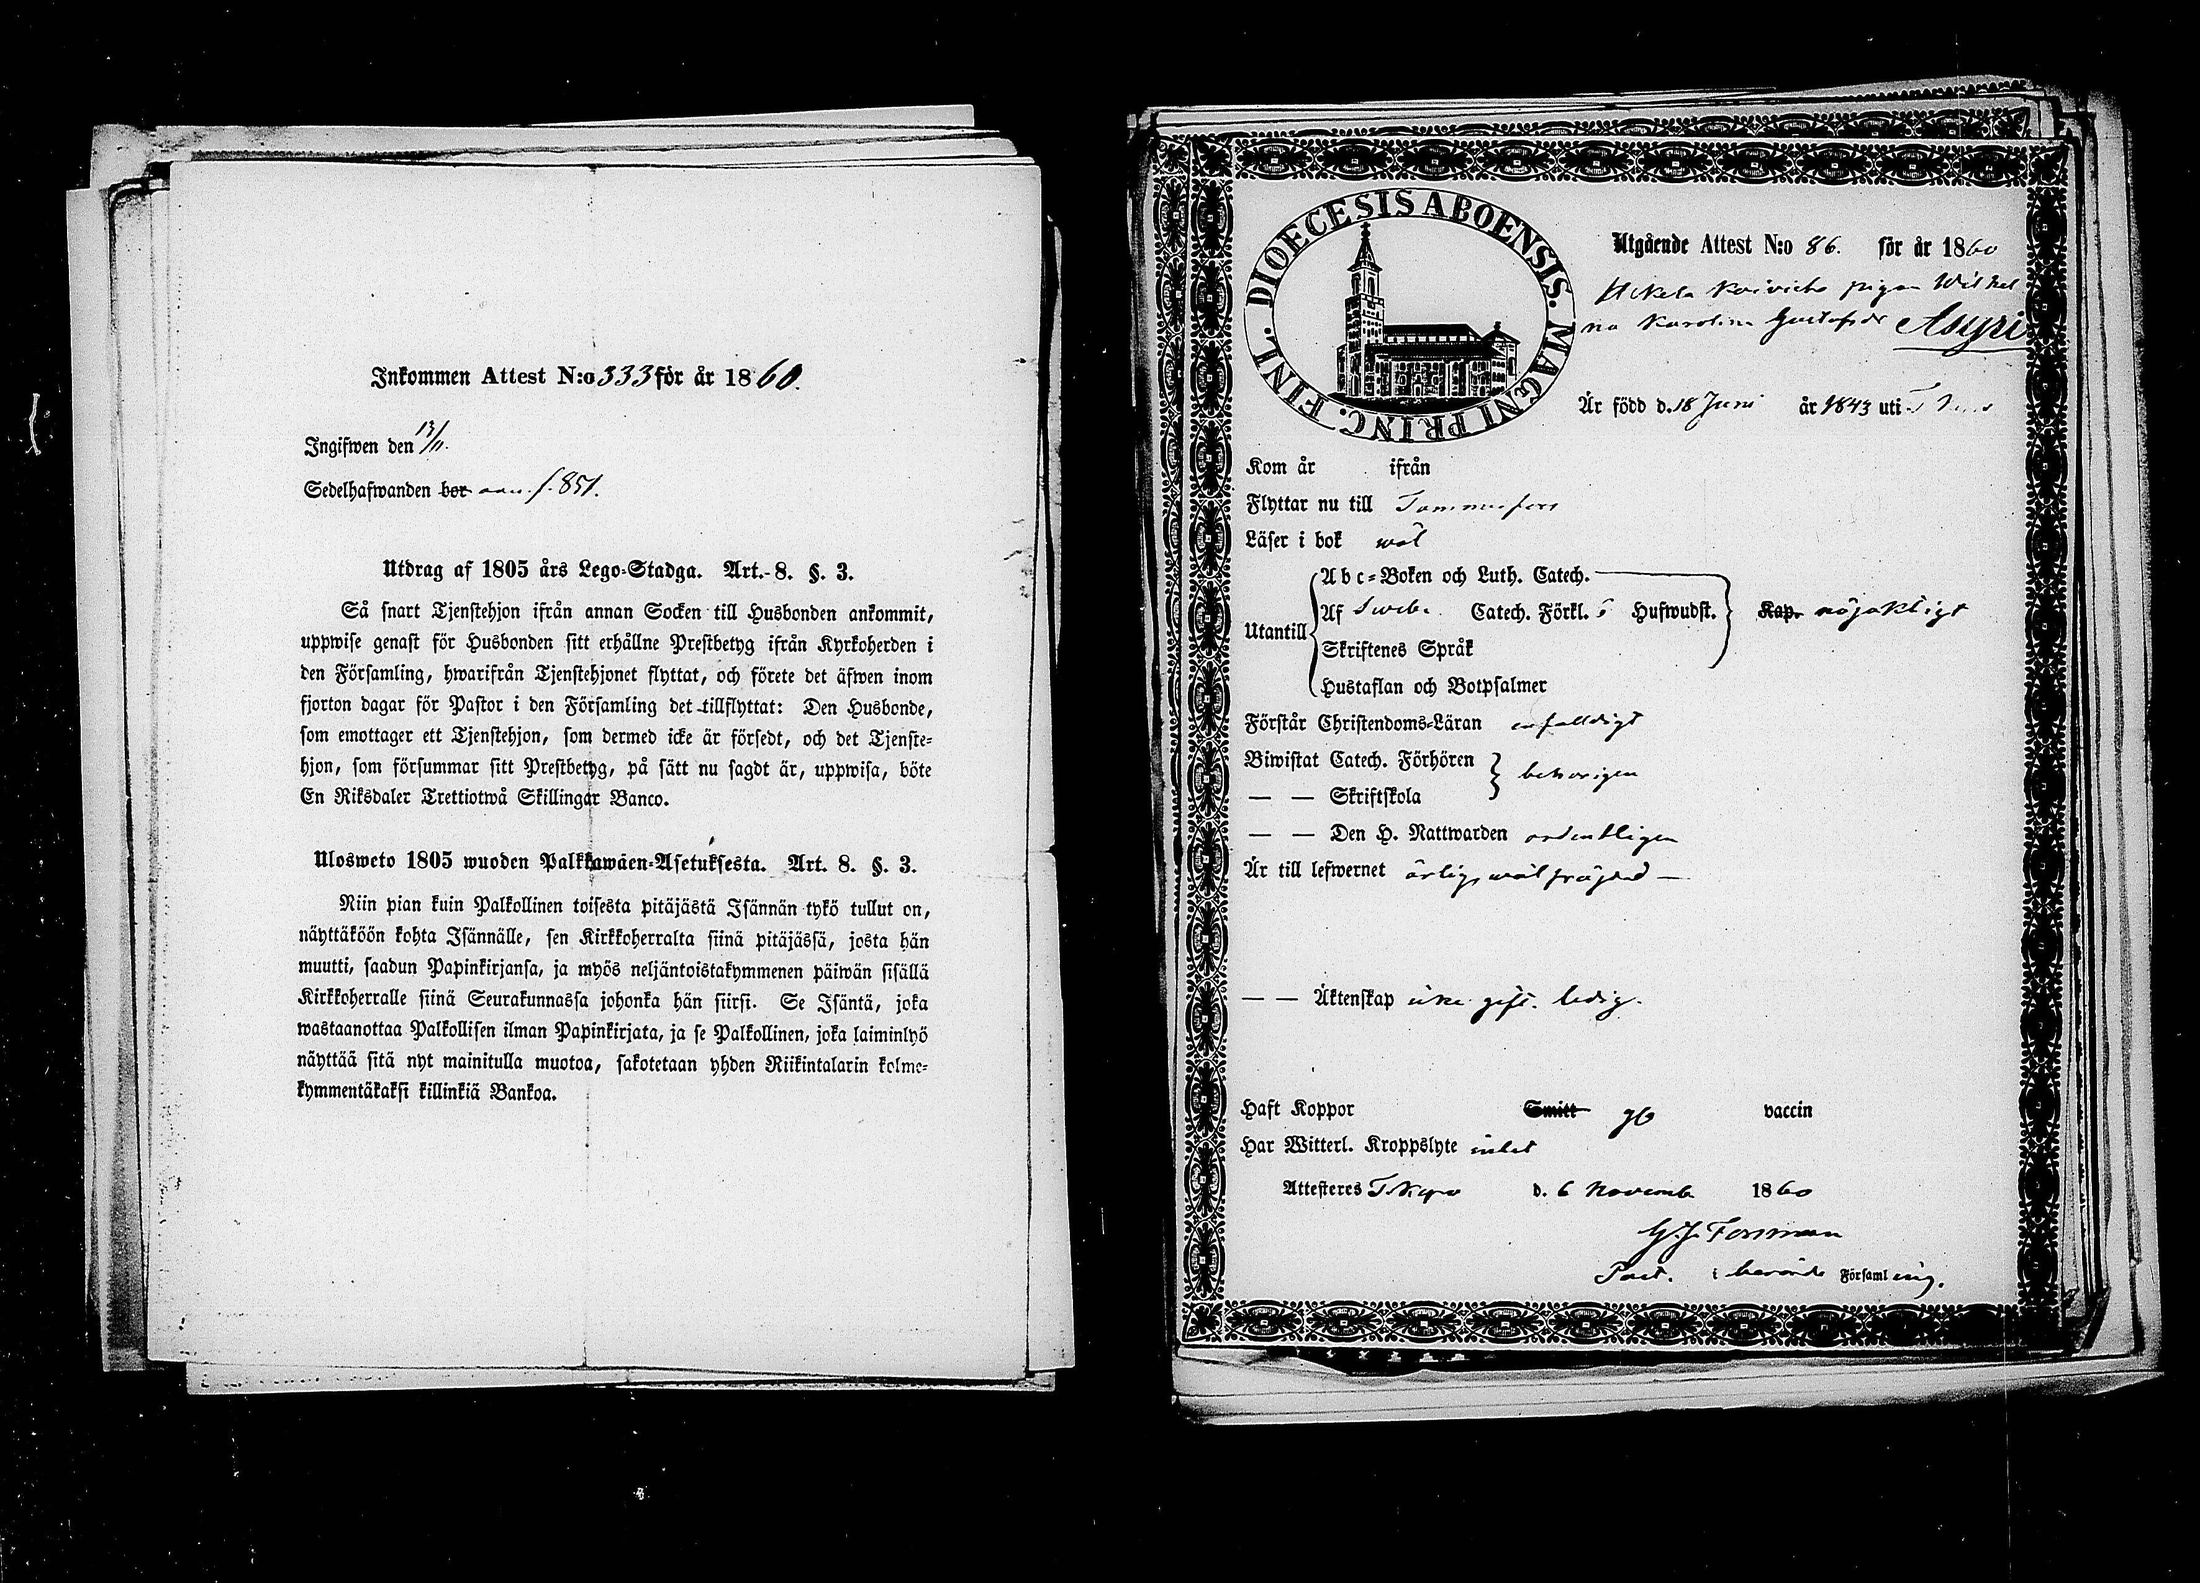 Inkommen Attest N:o 333 för år 1860.
Ingifwen den 13/11.
Sedelhafwanden bor ann. f. 851.
Utdrag af 1805 års Lego-Stadga. Art. 8. §. 3.
Så snart Tjenstehjon ifrån annan Socken till Husbonden ankommit,
uppwise genast för Husbonden sitt erhållne Prestbetyg ifrån Kyrkoherden i
den Församling, hwarifrån Tjenstehjonet flyttat, och förete det äfwen inom
fjorton dagar för Pastor i den Församling det tillflyttat: Den Husbonde,
som emottager ett Tjenstehjon, som dermed icke är försedt, och det Tjenste-
hjon, som försummar sitt Prestbetyg, på sätt nu sagdt är, uppwisa, böte
En Riksdaler Trettiotwå Skillingar Banco.
Ulosweto 1805 wuoden Palkkawäen-Asetuksesta. Art. 8. §. 3.
Niin pian kuin Palkollinen toisesta pitäjästä Isännän tykö tullut on,
näyttäköön kohta Isännälle, sen Kirkkoherralta siinä pitäjässä, josta hän
muutti, saadun Papinkirjansa, ja myös neljäntoistakymmenen päiwän sisällä
Kirkkoherralle siinä Seurakunnassa johonka hän siirsi. Se Isäntä, joka
wastaanottaa Palkollisen ilman Papinkirjata, ja se Palkollinen, joka laiminlyö
näyttää sitä nyt mainitulla muotoa, sakotetaan yhden Riikintalarin kolme-
kymmentäkaksi killinkiä Bankoa.
DIOECESIS ABOENSIS. MAGNI PRINC. FINL.
Utgående Attest N:o 86. för år 1860
pigan Wilhel
na Karolina Gustafsdr
Är född d. 18 Juni år 1843 uti
Kom år ifrån
Flyttar nu till Tammerfors
Läser i bok wäl
Utantill
Abc-Boken och Luth. Catech.
Af Swebe. Catech. Förkl. 5 Hufwudst. Kap. nöjaktligt
Skriftenes Språk
Hustaflan och Botpsalmer
Förstår Christendoms-Läran enfalldigt
Biwistat Catech. Förhören behörigen
— — Skriftskola
— — Den H. Nattwarden ordentligen
Är till lefwernet ärlig, wälfräjdad —
— — Äktenskap icke gift. ledig.
Haft Koppor Smitt vaccin
Har Witterl. Kroppslyte intet
Attesteres d. 6 November 1860
G. J. Forsman
Past. i berörde Församling.